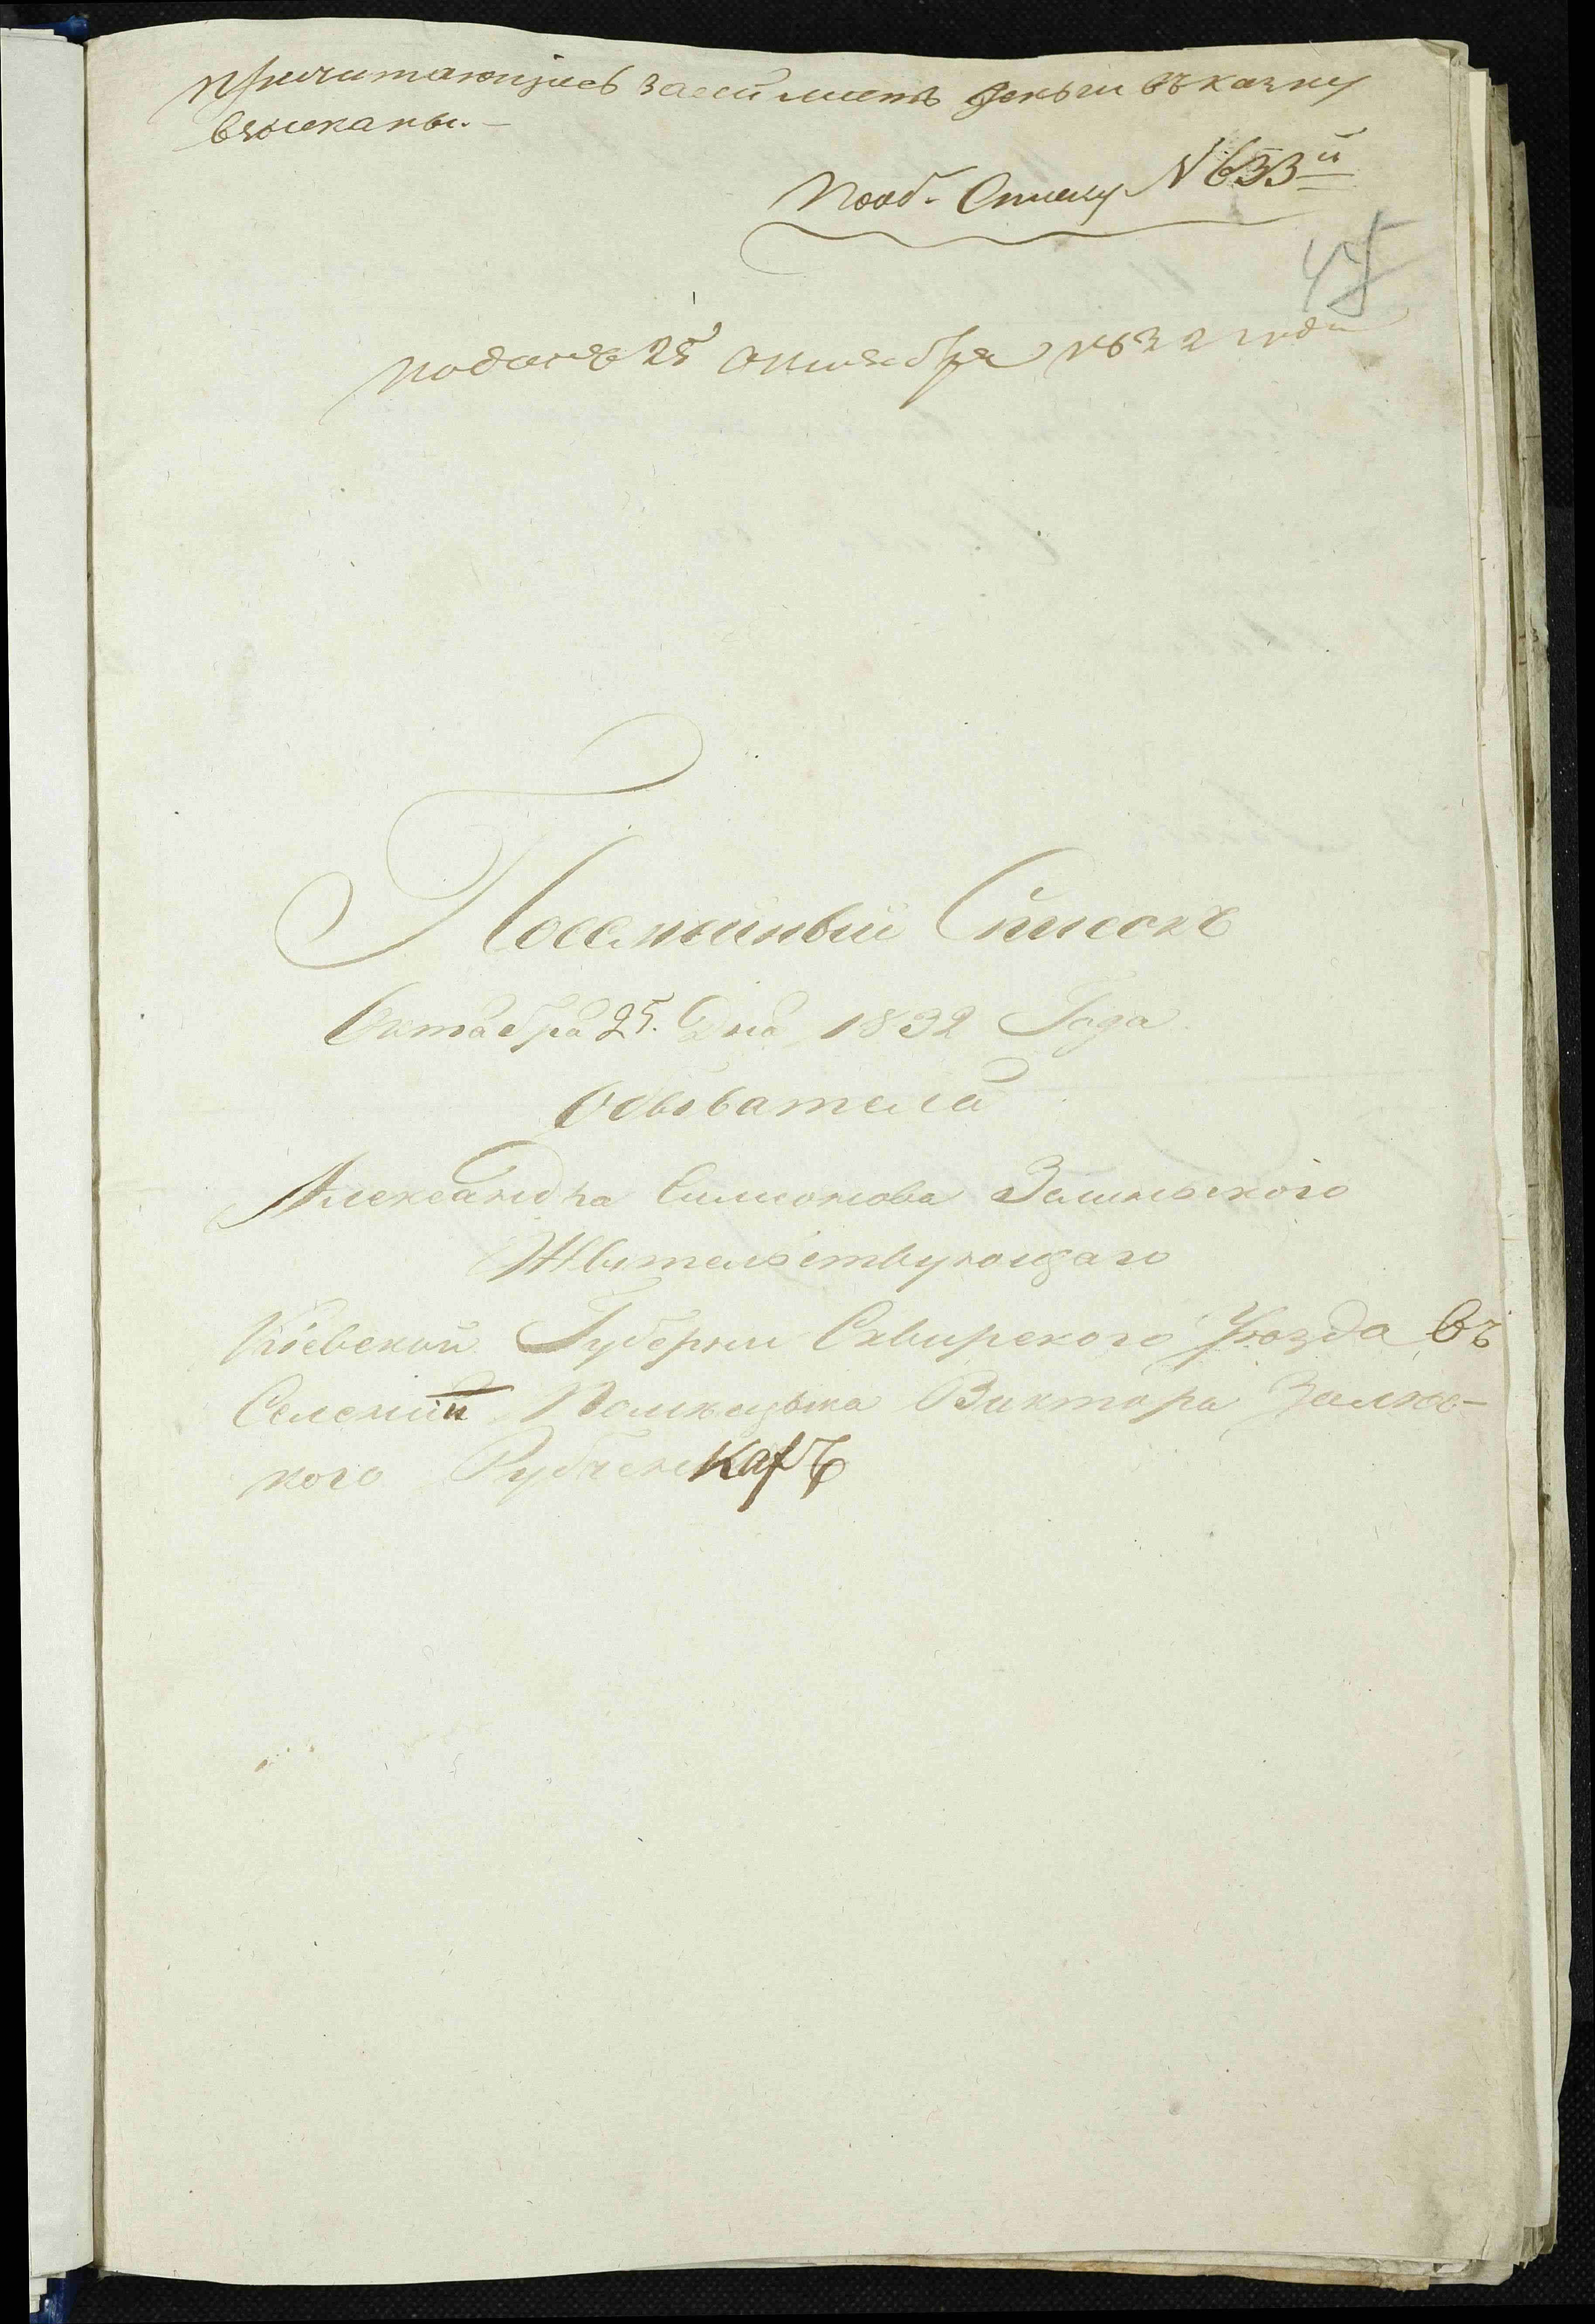 причитающіяся за сей листъ деньги въ казну
взысканы.—
по об. списку № 633й
45
поданъ 25 октября 1832 года
Посемейный Списокъ
Октабра 25. Дна 1832 Года
Обывателя
Александра Симонова Зелинского
Жытельствующаго
Кіевской Губерніи Сквирского Уѣзда въ
Селеніи Помѣщыка Виктора Зелин-
кого